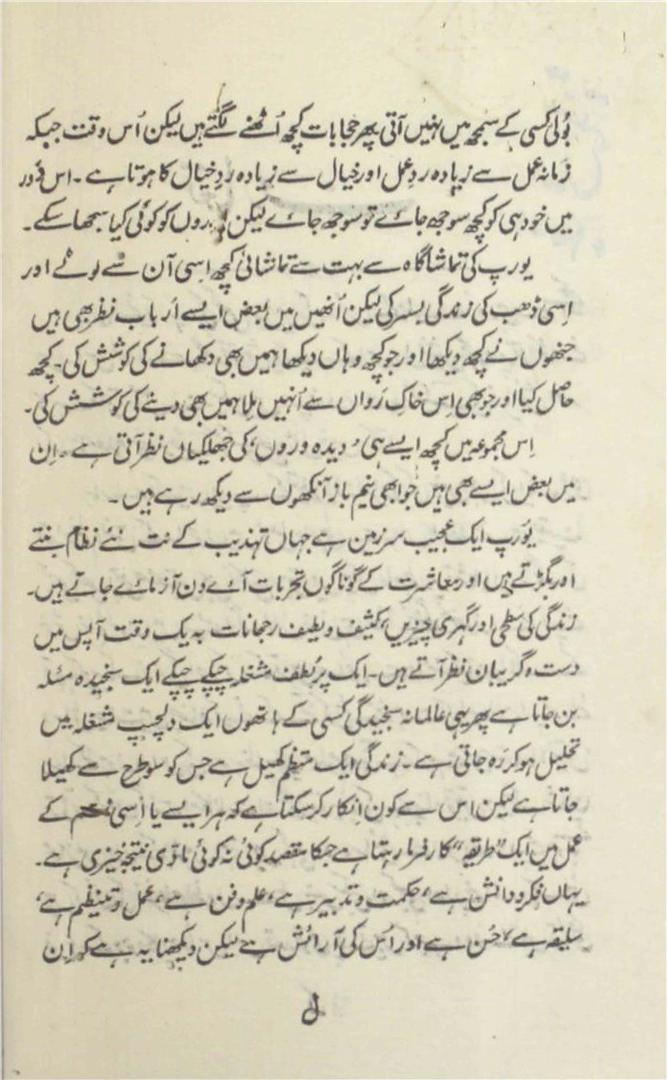 بولی کسی کے سمجھ میں نہیں آتی پھر حجابات کچھ اُٹھنے لگتے ہیں لیکن اُس وقت جبکہ
زمانہ عمل سے زیادہ ردِ عمل اور خیال سے زیادہ ردِ خیال کا ہوتا ہے۔ اس دَور
میں خود ہی کو کچھ سوجھ جائے تو سوجھ جائے لیکن روں کو کوئی کیا سمجھا سکے۔
یورپ کی تماشا گاہ سے بہت سے تماشائی کچھ اِسی آن سے لوٹے اور
اِسی ڈھب کی زندگی بسر کی لیکن اُنھیں میں بعض ایسے اَرباب نظر بھی ہیں
جنھوں نے کچھ دیکھا اور جو کچھ وہاں دیکھا ہمیں بھی دکھانے کی کوشش کی۔ کچھ
حاصل کیا اور جو بھی اِس خاکِ رَواں سے اُنہیں مِلا ہمیں بھی دینے کی کوشش کی۔
اِس مجموعہ میں کچھ ایسے ہی ’دیدہ وروں‘ کی جھلکیاں نظر آتی ہے۔ اِن
میں بعض ایسے بھی ہیں جو ابھی نیم باز آنکھوں سے دیکھ رہے ہیں۔
یورپ ایک عجیب سرزمین ہے جہاں تہذیب کے نت نئے نظام بنتے
اور بگڑتے ہیں اور معاشرت کے گوناگوں تجربات آئے دن آزمائے جاتے ہیں۔
زندگی کی سطحی اور گہری چیزیں، کثیف و لطیف رجحانات بہ یک وقت آپس میں
دست و گریبان نظر آتے ہیں۔ ایک پُر لطف مشغلہ چپکے چپکے ایک سنجیدہ مسئلہ
بن جاتا ہے پھر یہی عالمانہ سنجیدگی کسی کے ہاتھوں ایک دلچسپ مشغلہ میں
تحلیل ہو کر رَہ جاتی ہے۔ زندگی ایک منظم کھیل ہے جس کو سو طرح سے کھیلا
جاتا ہے لیکن اس سے کون اِنکار کر سکتا ہے کہ ہر ایسے یا اِسی قسم کے
عمل میں ایک ”طریقہ“ کارفرما رہتا ہے جسکا مقصد کوئی نہ کوئی مادّی نتیجہ خیزی ہے۔
یہاں فکر و دانش ہے، حکمت و تدبیر ہے، علم و فن ہے، عمل و تنظیم ہے،
سلیقہ ہے، حُسن ہے اور اُس کی آرائش ہے لیکن دیکھنا یہ ہے کہ اِن
ل